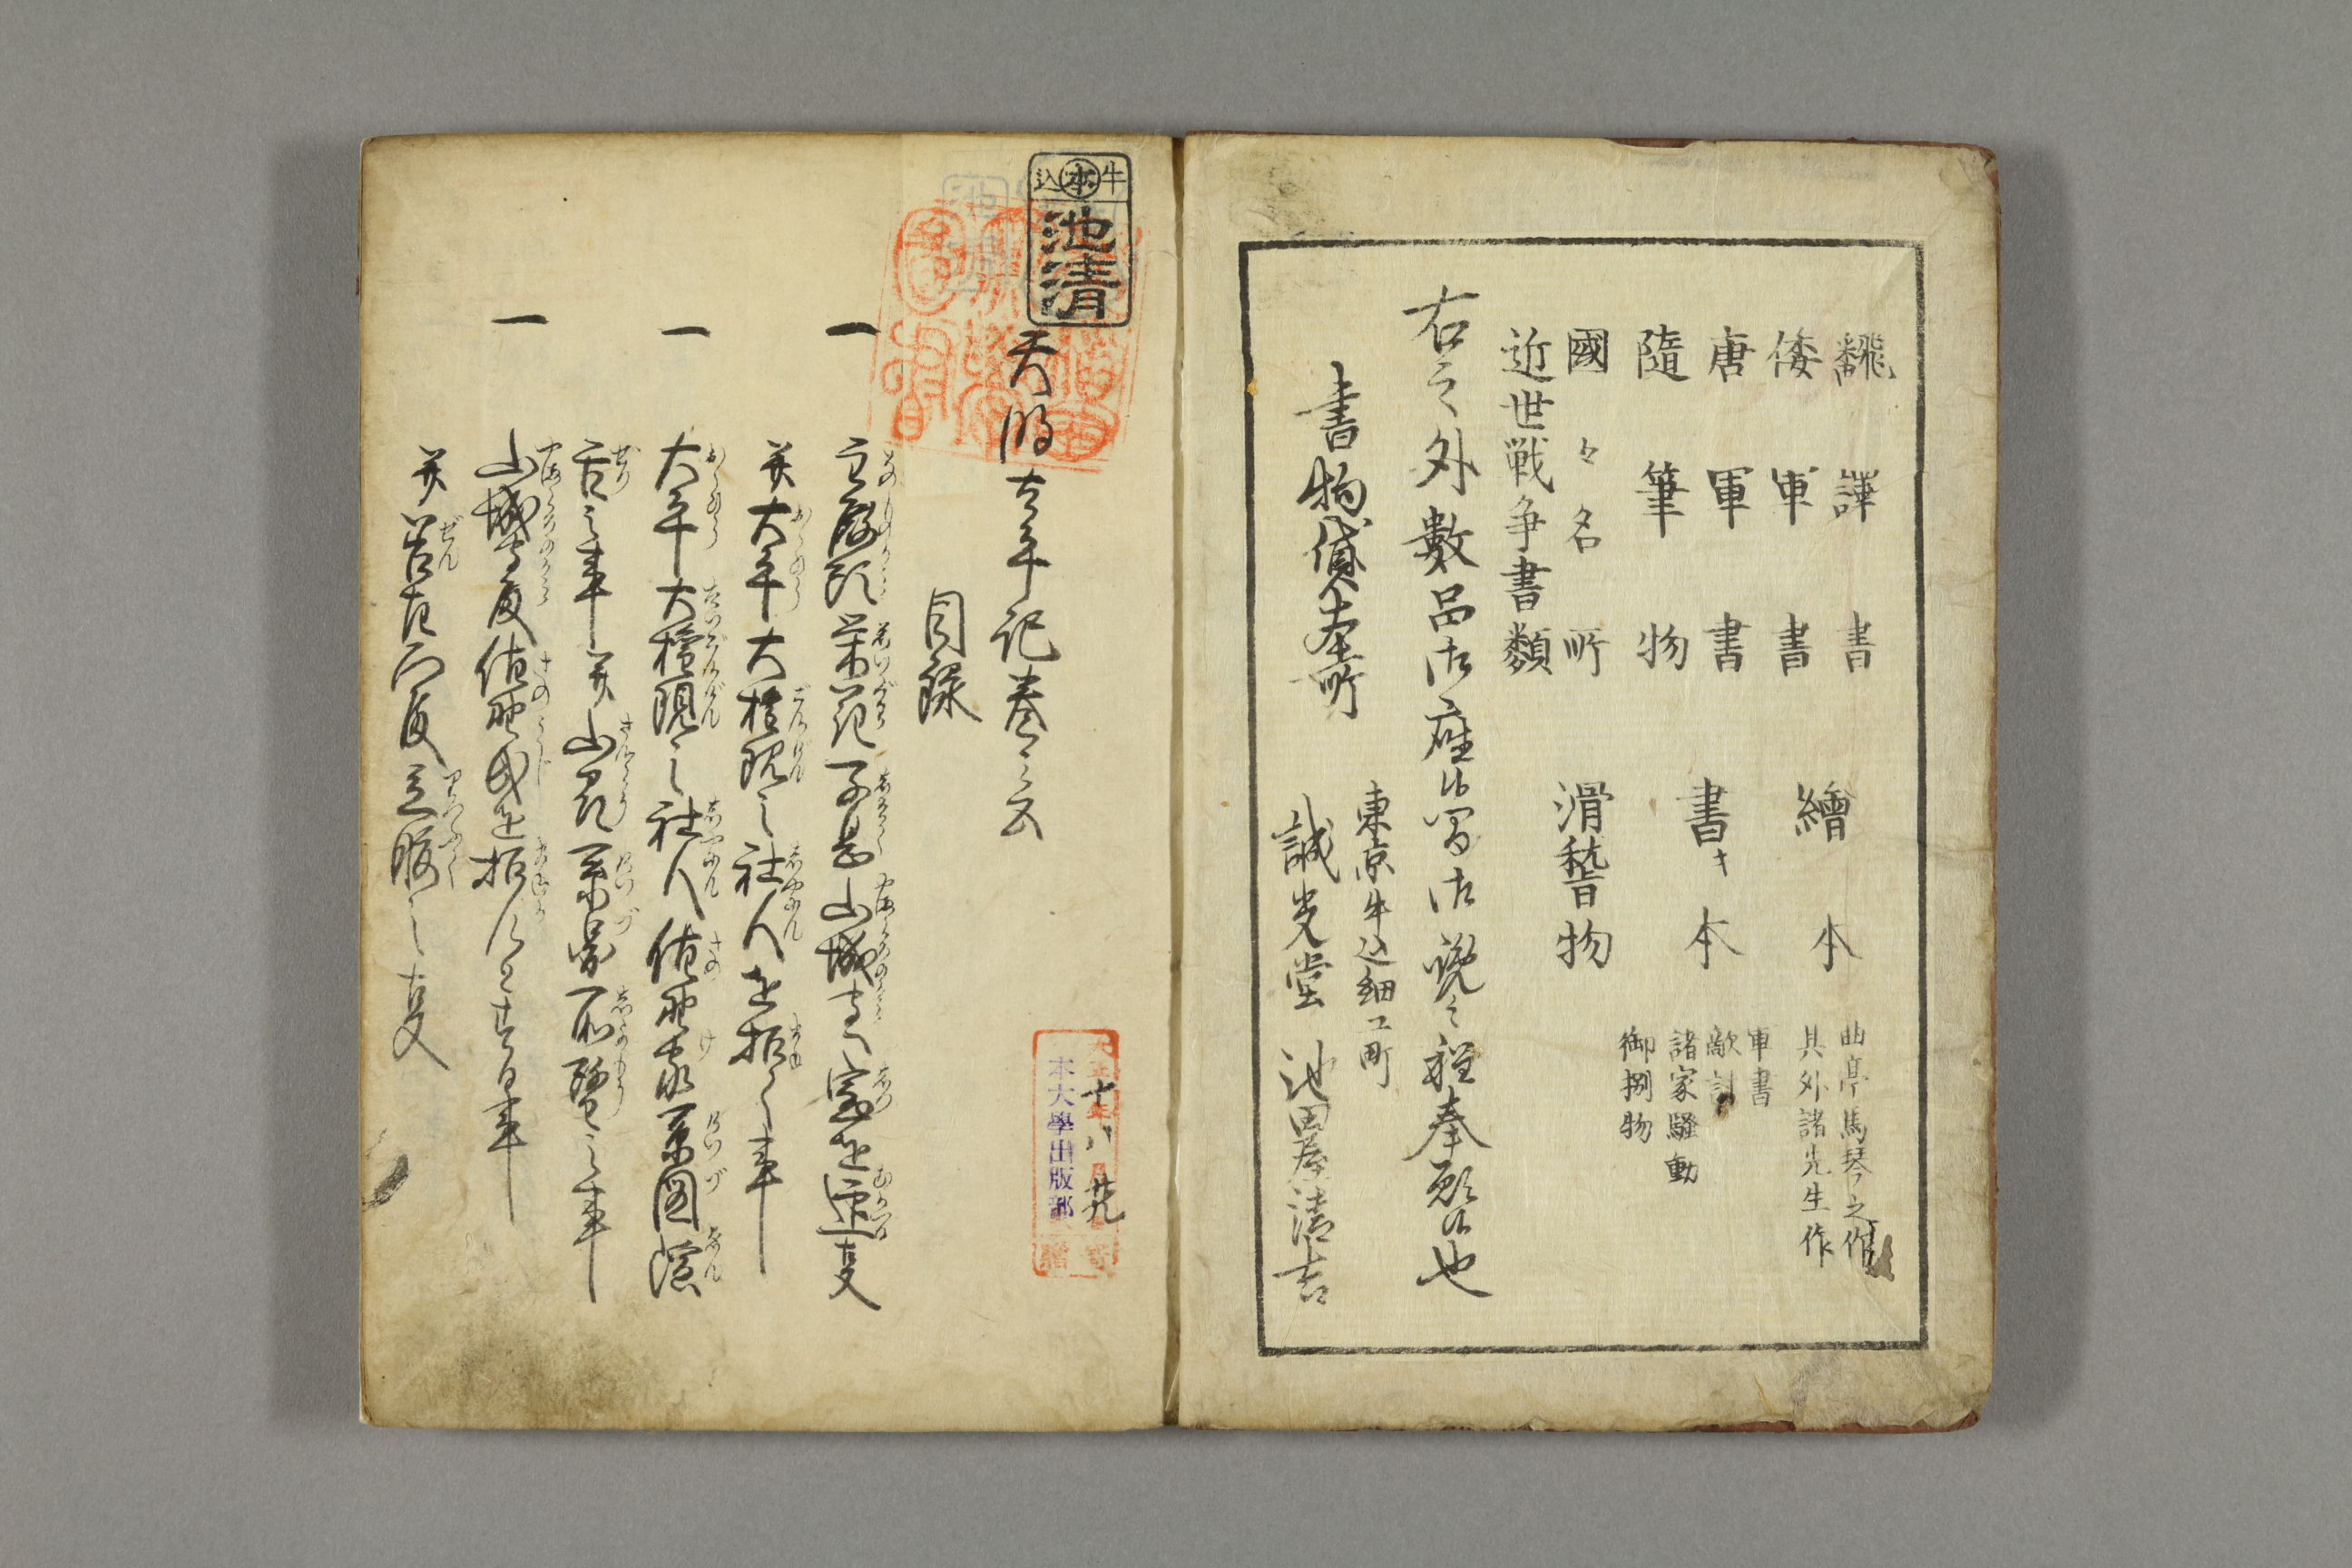 飜譯書
倭軍書
唐軍書
隨筆物
國々名所
近世戦争書類
繪本
書キ本
滑稽物
曲亭馬琴之作
其外諸先生作
軍書
敵討
諸家騒動
御捌物
右之外數品御座候間御覧之程奉願候也
書物貸本所
東京牛込細工町
誠光堂 池田屋清吉
牛込 本
池清
天明太平記巻之五
目録
一 主殿頭栄花子息山城守室を迎事
并大平大権現之社人を招く事
一 大平大権現之社人佐野家系図濫
舌之事并山家系図所望之事
一 山城守殿佐野氏を招
并 殿立腹之事
大學出版部